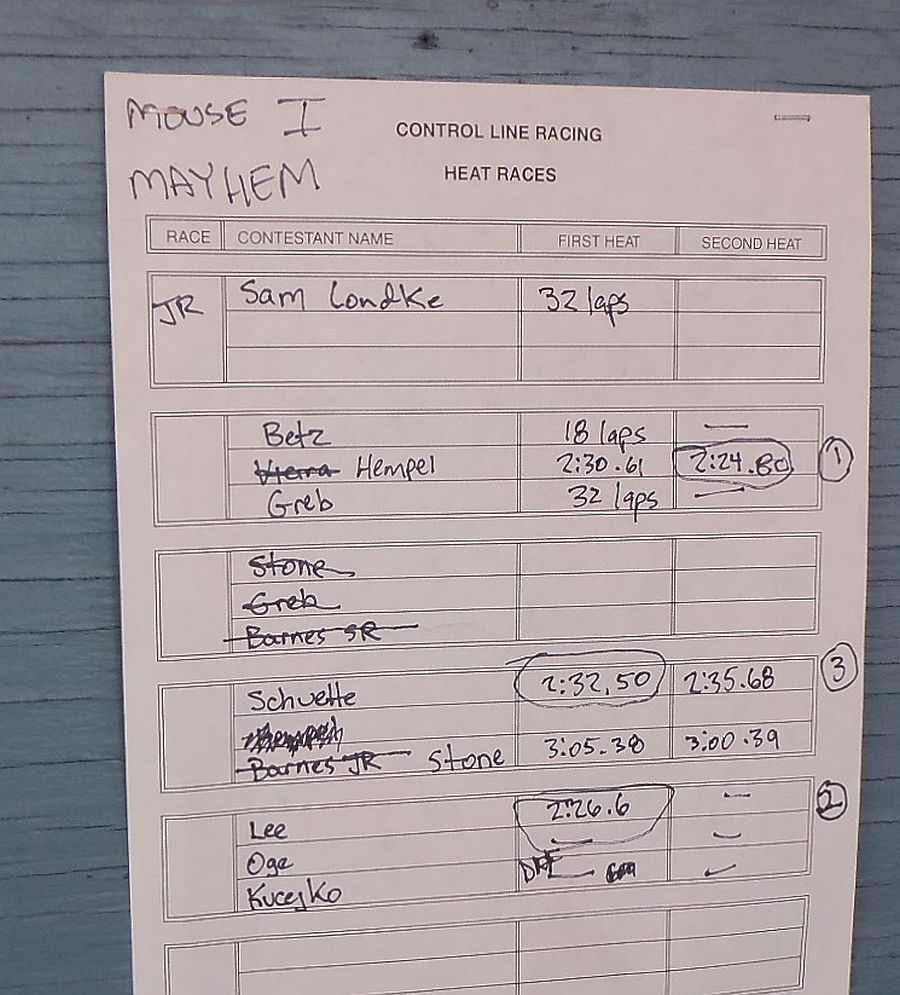 MOUSE I
MAYHEM
CONTROL LINE RACING
HEAT RACES
RACE CONTESTANT NAME FIRST HEAT SECOND HEAT
JR Sam Londke 32 laps
Betz 18 laps —
Vierra Hempel 2:30.61 2:24.80 1
Greb 32 laps —
Stone
Greb
Barnes SR
Schuette 2:32,50 2:35.68 3
Barnes JR Stone 3:05.38 3:00.39
Lee 2:26.6 — 2
Oge — —
Kucejko DNF —